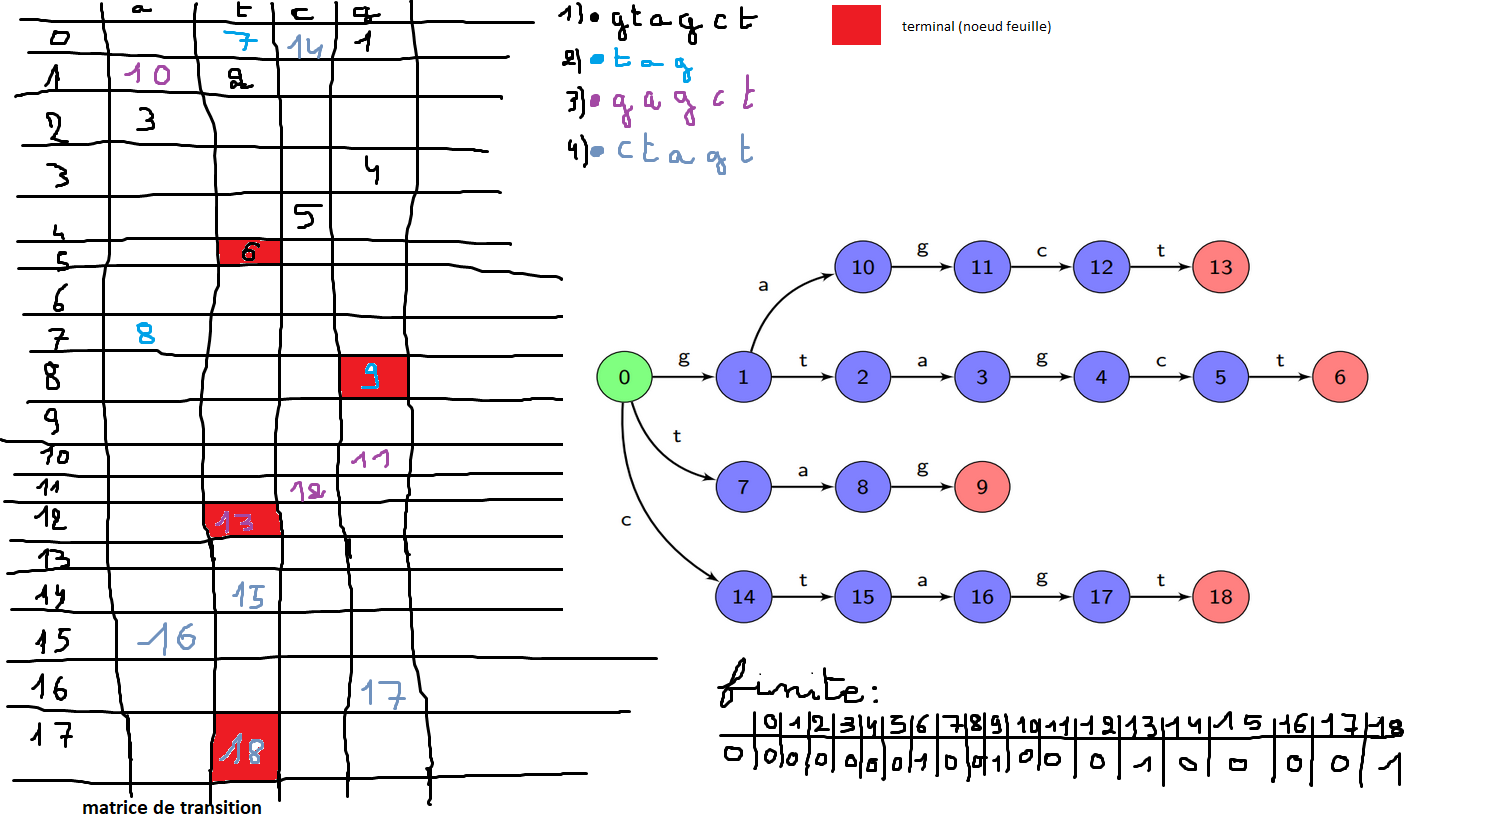 a t c g
0 7 14 1
1 10 2
2 3
3 4
4 5
5 6
6
7 8
8 9
9
10 11
11 12
12 13
13
14 15
15 16
16 17
17 18
matrice de transition
1) • gtagct
2) • tag
3) • gagct
4) • ctagt
terminal (noeud feuille)
a 10 g 11 c 12 t 13
0 g 1 t 2 a 3 g 4 c 5 t 6
t 7 a 8 g 9
c 14 t 15 a 16 g 17 t 18
finite:
0 1 2 3 4 5 6 7 8 9 10 11 12 13 14 15 16 17 18
0 0 0 0 0 0 0 1 0 0 1 0 0 0 1 0 0 0 0 1